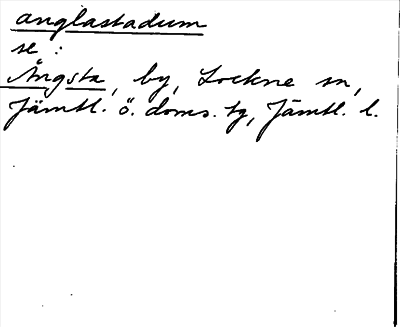 anglastadum
se :
Ångsta, by, Lockne sn,
Jämtl. ö. doms. tg, Jämtl. l.